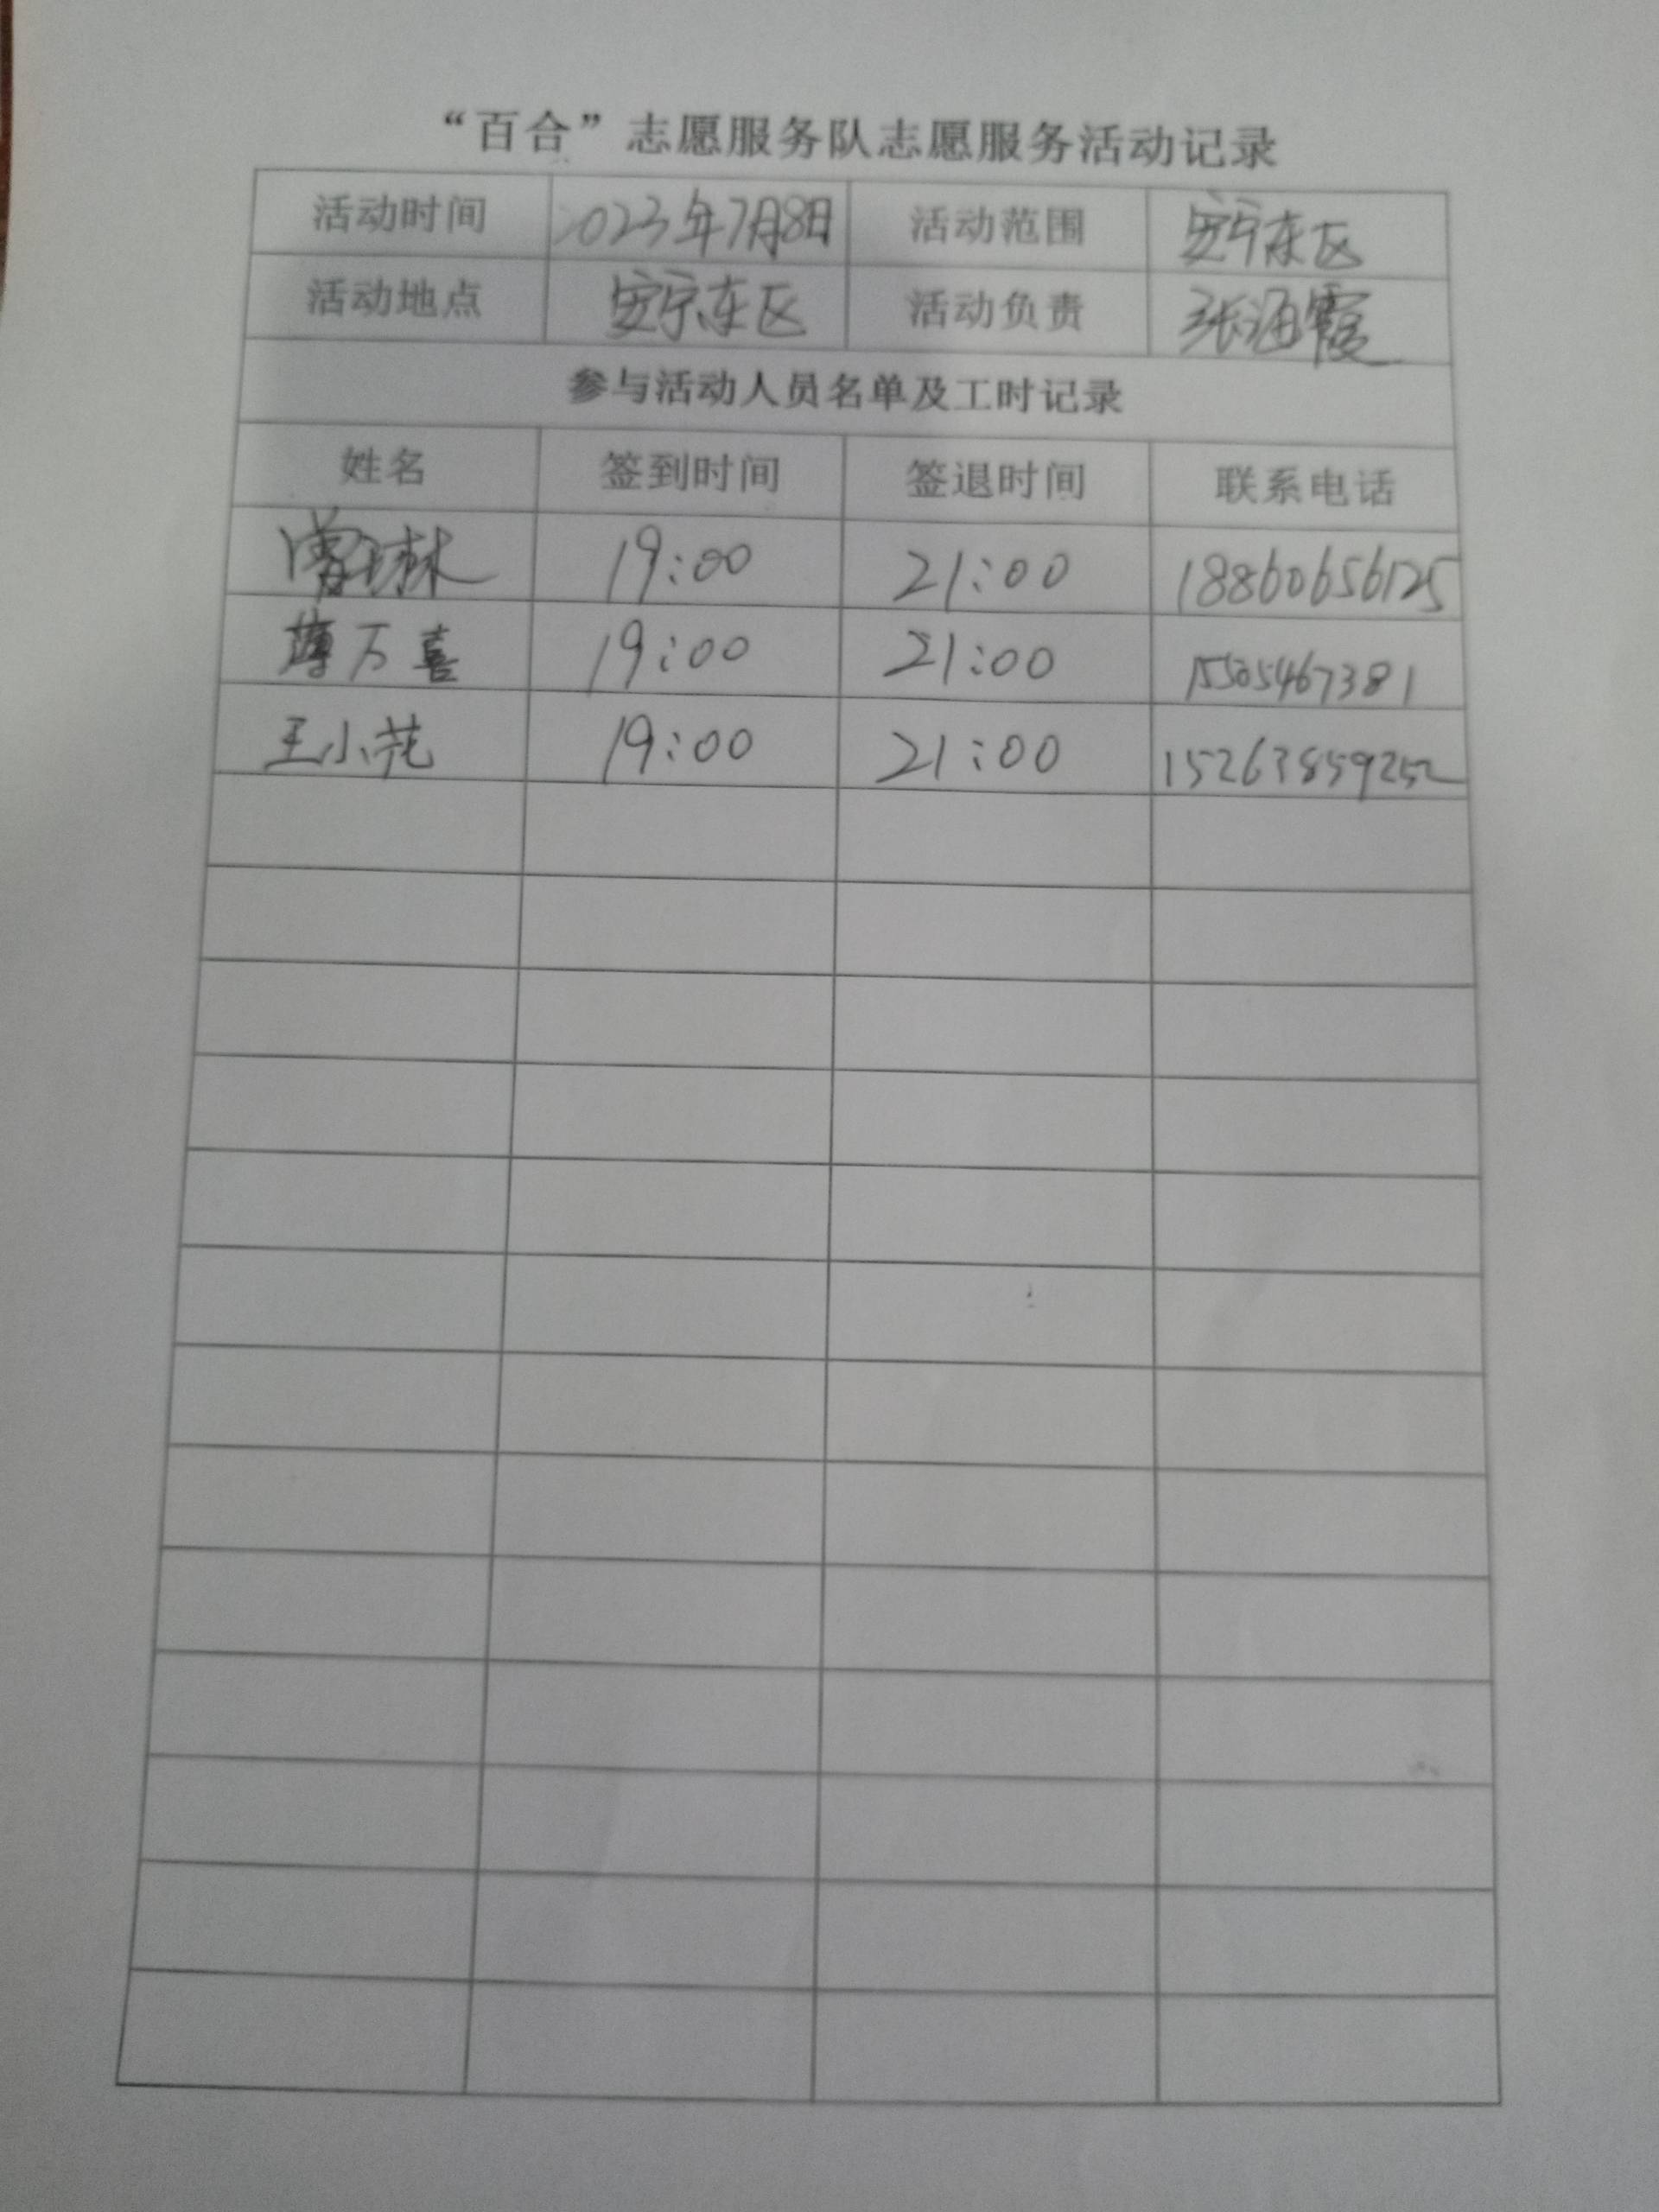 “百合”志愿服务队志愿服务活动记录
活动时间 2023年7月8日 活动范围 安宁东区
活动地点 安宁东区 活动负责 张海霞
参与活动人员名单及工时记录
姓名 签到时间 签退时间 联系电话
曾琳 19:00 21:00 18860656125
薄万喜 19:00 21:00 15505467381
王小花 19:00 21:00 15263859252